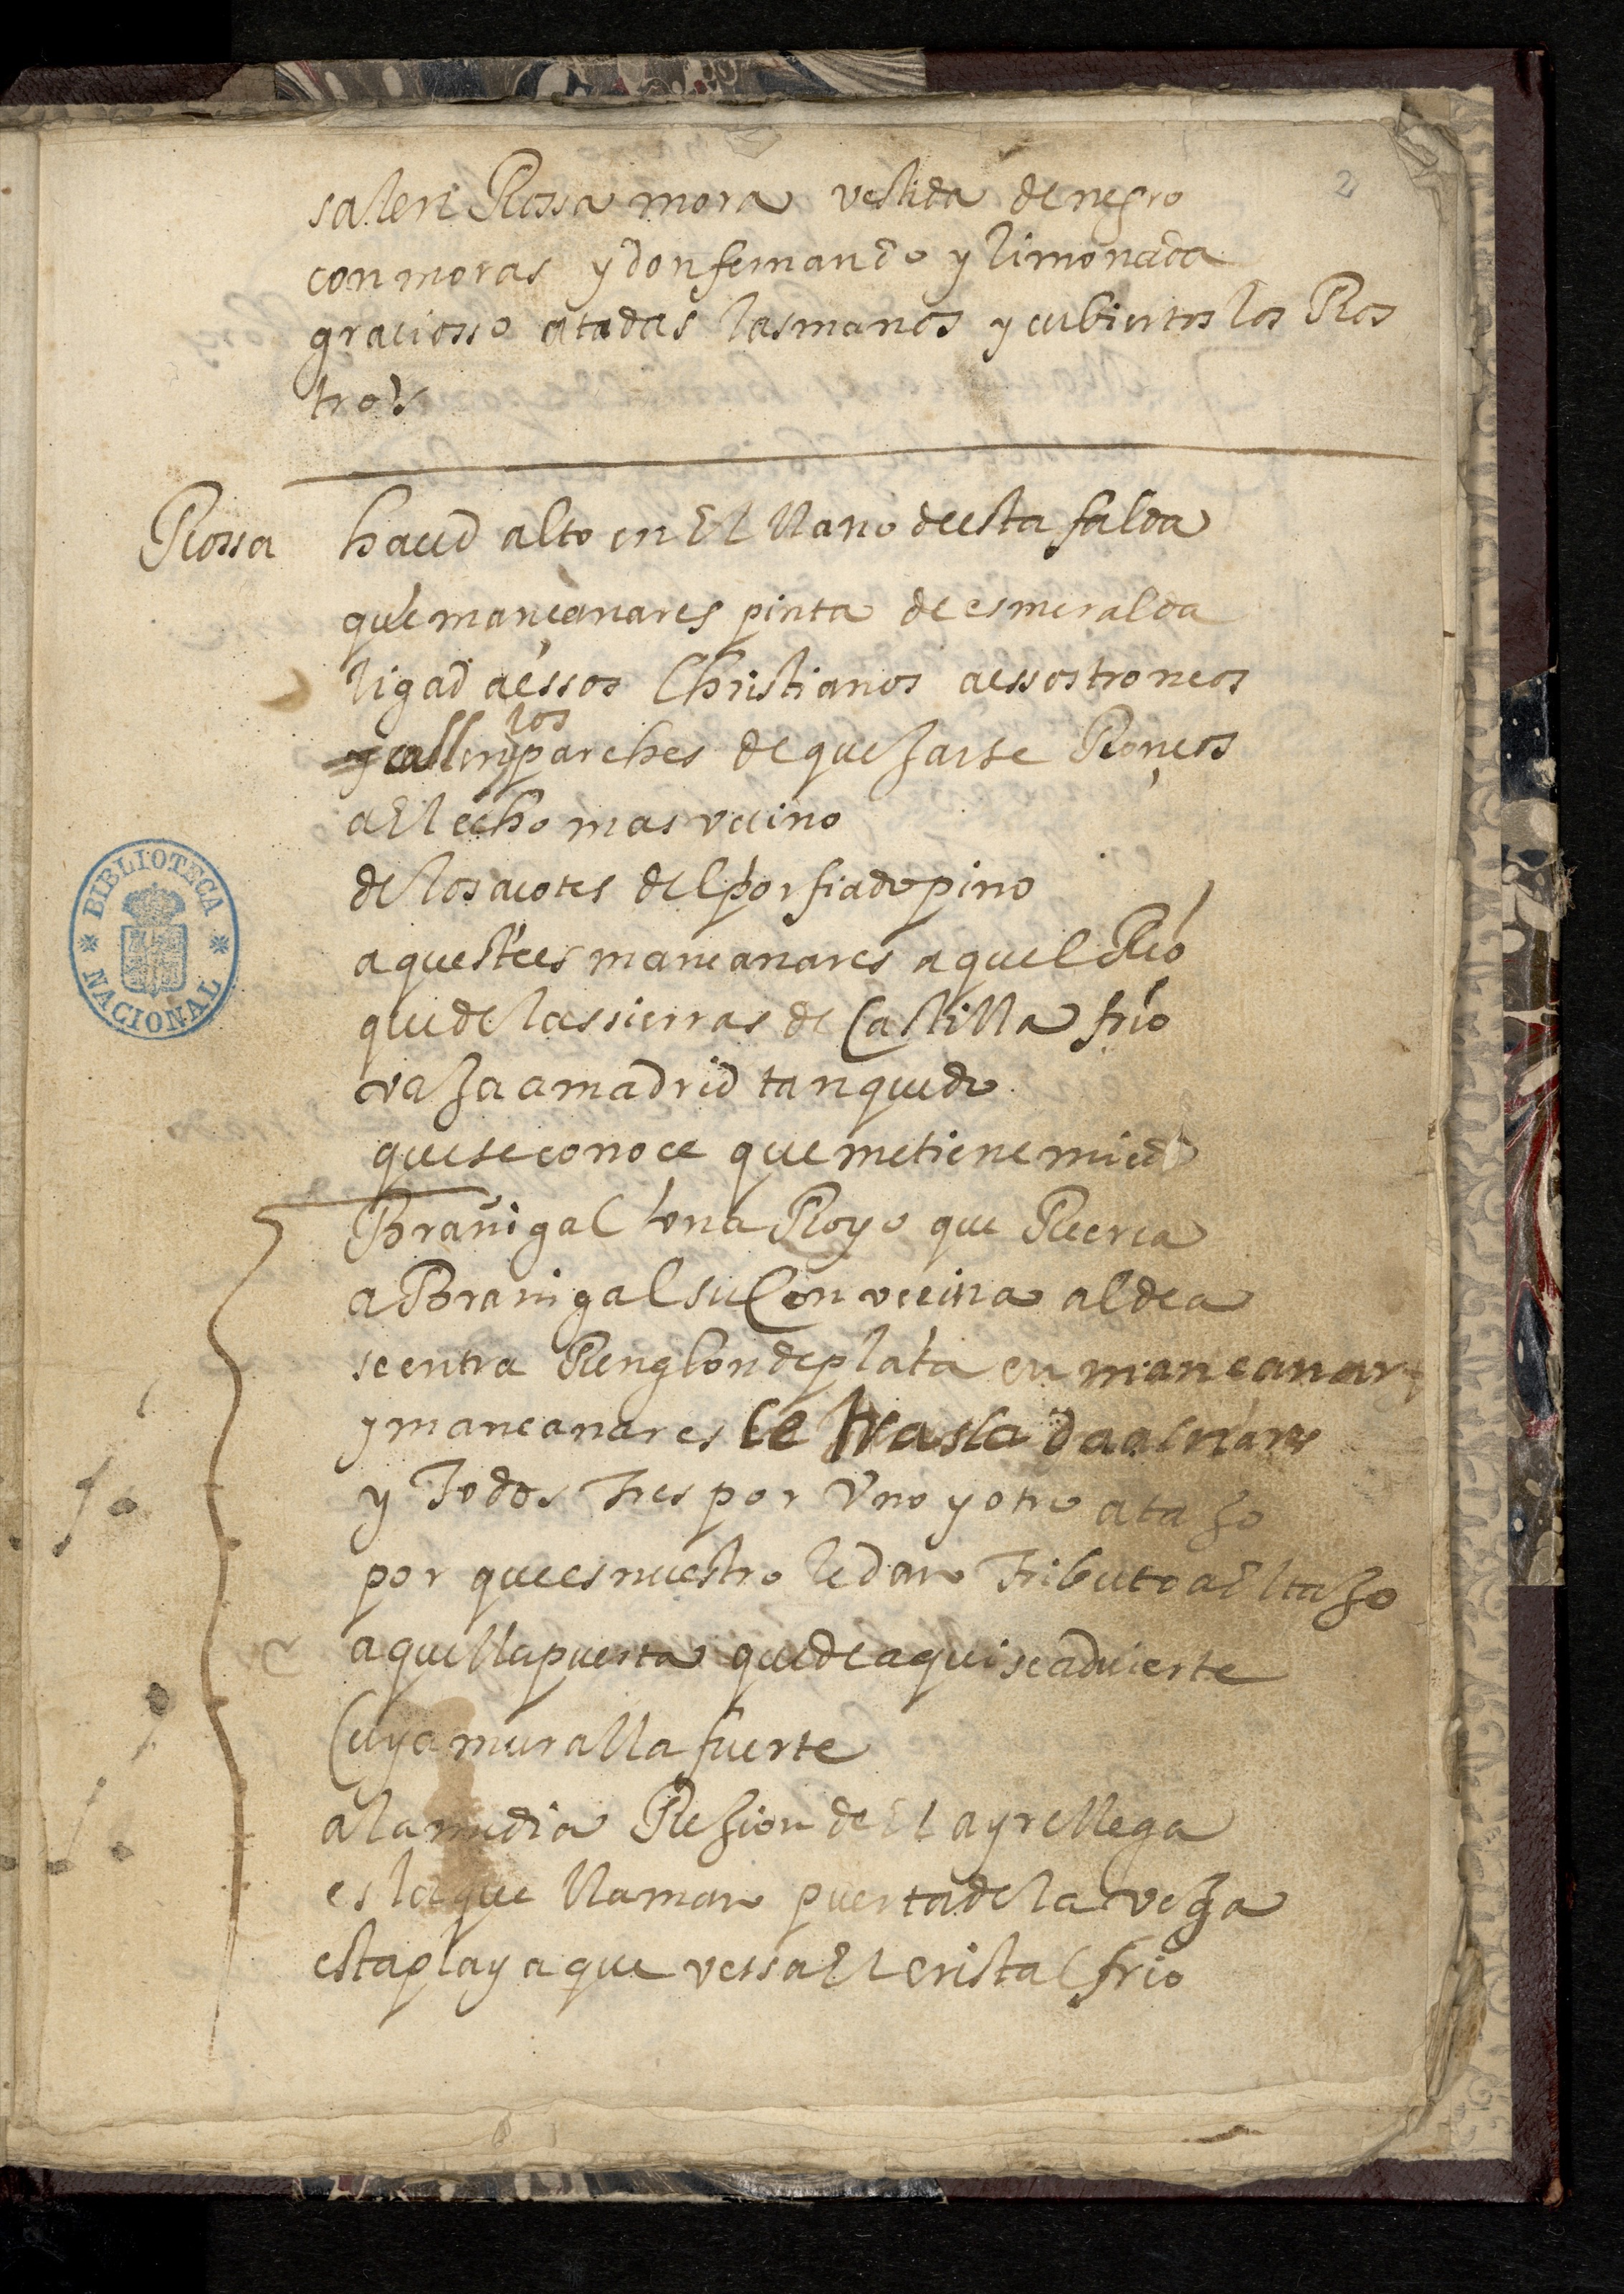 2
salen Rossa mora vestida de negro
con moras y don fernando y limonada
graciosso atadas las manos y cubiertos los Ros
tros
Rossa haced alto en El llano de esta falda
que mançanares pinta de esmeralda
ligad a essos Christianos a essos troncos
y callen los parches de quejarse Roncos
a El echo mas vecino
de los açotes del porfiado pino
aqueste es mancanares aquel Rio
que de las sierras de Castilla frio
vaja a madrid tan quedo
que se conoce que me tiene miedo
Brañigal Royo que Recrea
a Branigal su Convecina aldea
se entra Renglon de plata en mancanares
y mancanares le traslada a enares
y Todos Tres por Vno y otro atajo
por que es nuestro le dan Tributo a El tajo
aquella puerta que de aqui se advierte
Cuya muralla fuerte
a la media Rejion de El ayre llega
es la que llaman puerta de la vega
esta playa que vessa El cristal frio
BIBLIOTECA NACIONAL